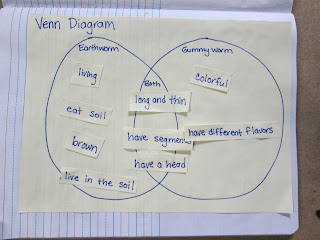 Venn Diagram
Earthworm
Gummy worm
living
Both
colorful
long and thin
eat soil
have segments
have different flavors
brown
have a head
live in the soil